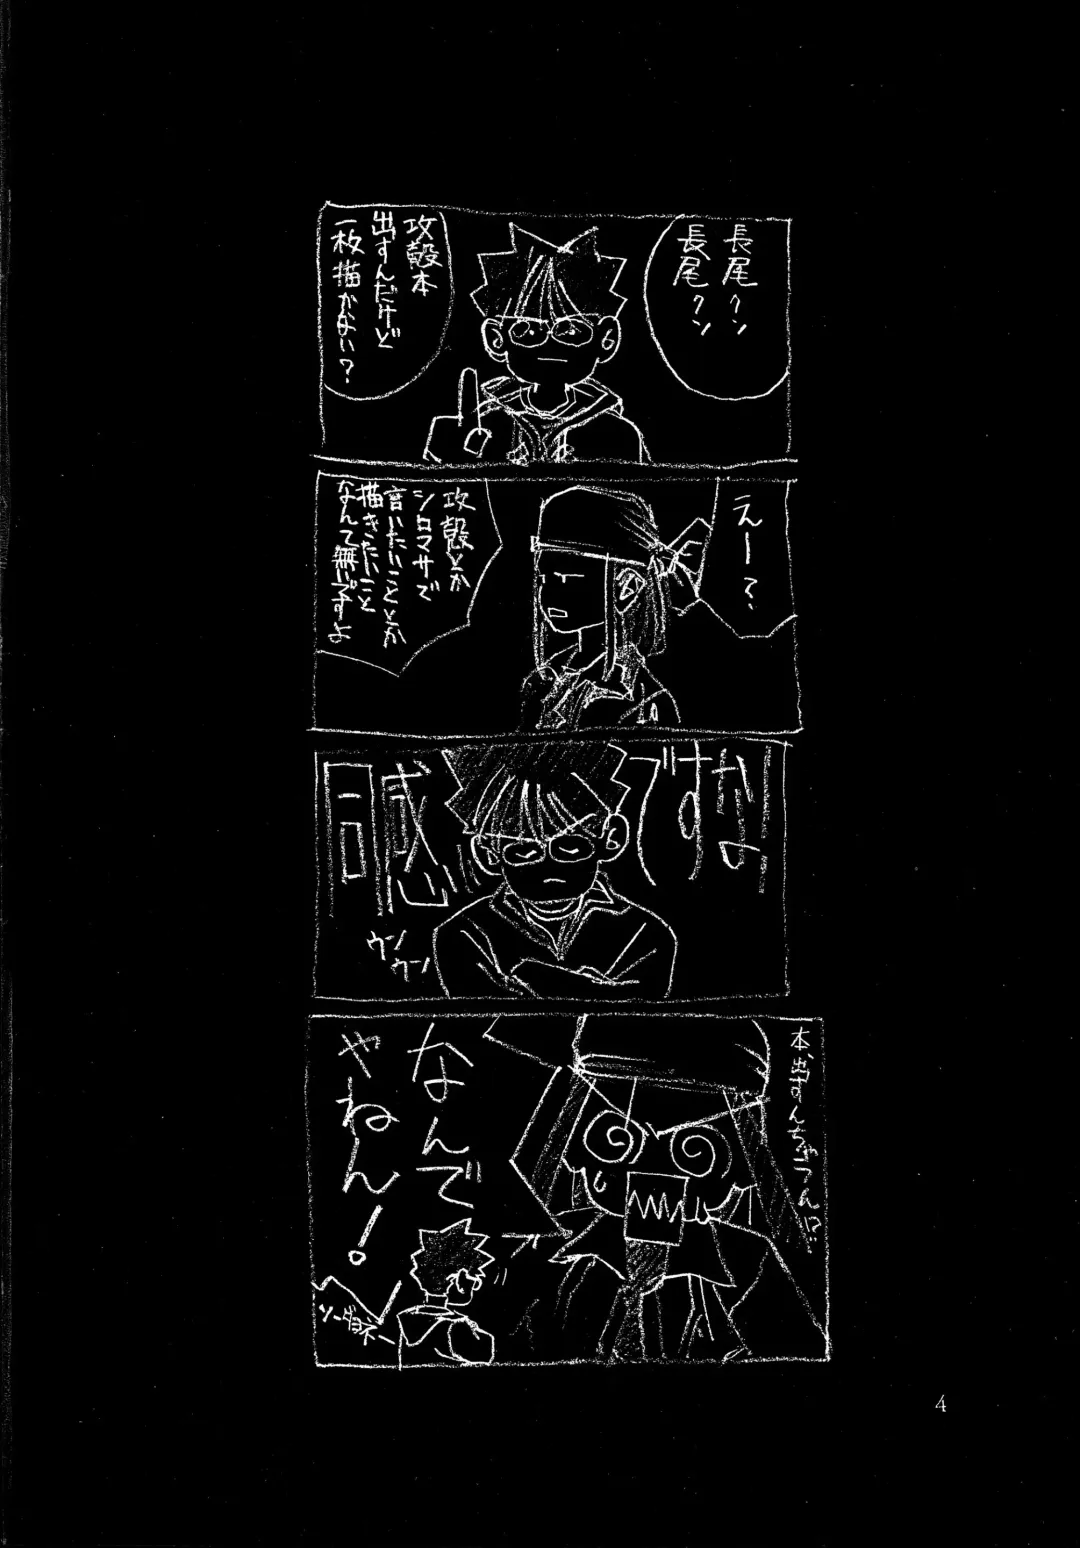 長尾クン
長尾クン
攻殻本
出すんだけど
一枚描かない?
えー?
攻殻とか
シロマサで
言いたいこととか
描きたいこと
なんて無いですよ
なよ
すな
同感
ウンウン
本、出すんちゃうん!?
なんで
やねん!
ソーダヨネー
4